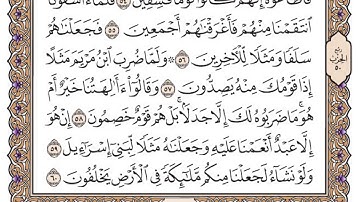 فَأَطَاعُوهُ إِنَّهُمْ كَانُوا۟ قَوْمًا فَـٰسِقِينَ ٥٤ فَلَمَّآ ءَاسَفُونَا
ٱنتَقَمْنَا مِنْهُمْ فَأَغْرَقْنَـٰهُمْ أَجْمَعِينَ ٥٥ فَجَعَلْنَـٰهُمْ
سَلَفًا وَمَثَلًا لِّلْـَٔاخِرِينَ ٥٦ ۞ وَلَمَّا ضُرِبَ ٱبْنُ مَرْيَمَ مَثَلًا
إِذَا قَوْمُكَ مِنْهُ يَصِدُّونَ ٥٧ وَقَالُوٓا۟ ءَأَـٰلِهَتُنَا خَيْرٌ أَمْ
هُوَ ۚ مَا ضَرَبُوهُ لَكَ إِلَّا جَدَلًۢا ۚ بَلْ هُمْ قَوْمٌ خَصِمُونَ ٥٨ إِنْ
هُوَ إِلَّا عَبْدٌ أَنْعَمْنَا عَلَيْهِ وَجَعَلْنَـٰهُ مَثَلًا لِّبَنِىٓ إِسْرَٰٓءِيلَ ٥٩
وَلَوْ نَشَآءُ لَجَعَلْنَا مِنكُم مَّلَـٰٓئِكَةً فِى ٱلْأَرْضِ يَخْلُفُونَ ٦٠
الحزب
٥٠